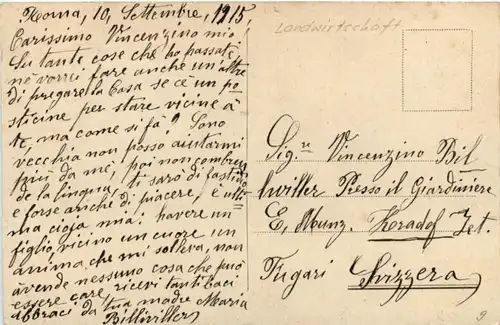 Roma, 10, Settembre, 1915,
Carissimo Vincenzino mio!
Su tante cose che ho passate
ne vorrei fare anche un'altre
di pregare la Casa se c'è un po
sticine per stare vicine à
te, ma come si fà? Sono
vecchia non posso aiutarmi
più da me, poi non
de la lingua, ti sarò di fastidio
e forse anche di piacere, è ulti
ma cioja mia! havere un
figlio vicino un cuore un
anima che mi solleva, non
avende nessuno cosa che può
essere care ricevi tanti baci
abbraci da tua madre Maria
Billwiller
Landwirtschaft
Sig.re Vincenzino Bil
lwiller Presso il Giardiniere
E, Munz.
Fugari Svizzera
9